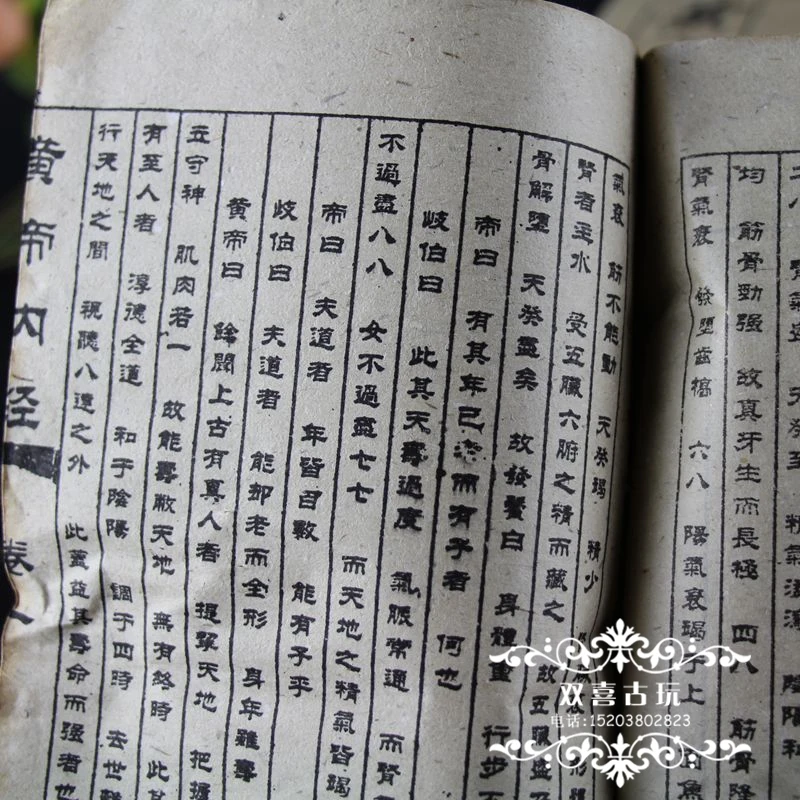 二八 腎氣盛 天癸至 精氣溢瀉 陰陽和
均 筋骨勁强 故真牙生而長極 四八 筋骨隆
腎氣衰 發墮齒槁 六八 陽氣衰竭于上
氣衰 筋不能動 天癸竭 精少
腎者主水 受五臟六腑之精而藏之 故五臟盛
骨解墮 天癸盡矣 故發鬢白 身體重 行步不
帝曰 有其年已 而有子者 何也
歧伯曰 此其天壽過度 氣脈常通 而腎氣
不過盡八八 女不過盡七七 而天地之精氣皆竭
帝曰 夫道者 年皆百數 能有子乎
歧伯曰 夫道者 能却老而全形 身年雖壽
黄帝曰 餘聞上古有真人者 提挈天地 把握
立守神 肌肉若一 故能壽敝天地 無有終時 此其
有至人者 淳德全道 和于陰陽 調于四時 去世
行天地之間 視聽八達之外 此蓋益其壽命而强者也
黄帝内经 卷一
双喜古玩
电话:15203802823